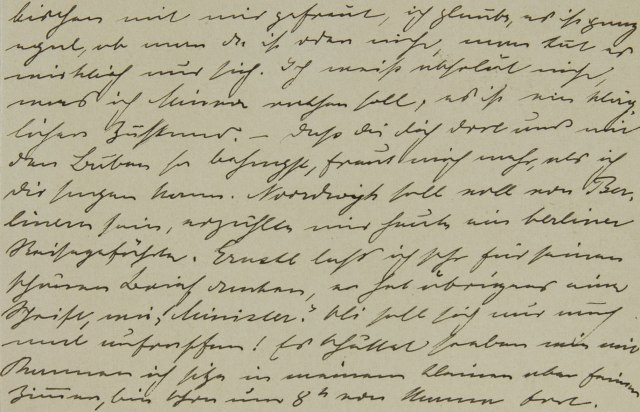 bischen mit mir gefreut, ich glaube, es ist ganz
egal, ob man da ist oder nicht, man tut es
wirklich nur sich. Ich weiss absolut nicht,
was ich Minna rathen soll, es ist ein kläg-
licher Zustand. – Dass du dich dort und mit
den Buben so behagst, freut mich mehr, als ich
dir sagen kann. Noordwijk soll voll von Ber-
linern sein, erzählte mir heute ein berliner
Reisegefährte. Ernstl lass ich sehr für seinen
schönen Brief danken, er hat übrigens eine
Schrift, wie "Minister". Oli soll sich nur auch
mal aufraffen! Es schüttet soeben wie mit
Kannen ich sitze in meinem kleinen aber feinen
Zimmer, bin schon um 8h von dort.